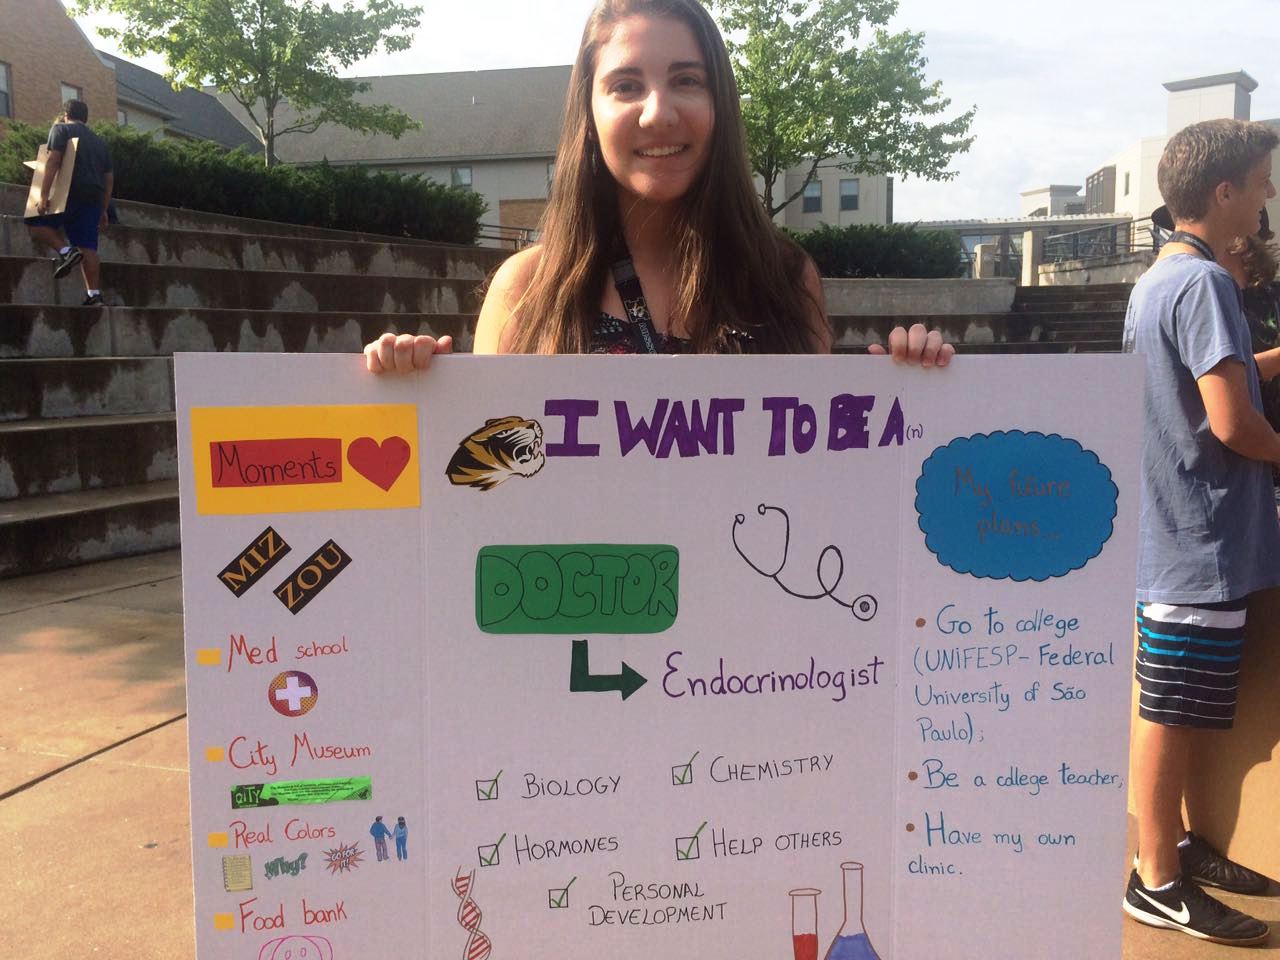 Moments
MIZ
ZOU
Med school
City Museum
CITY
Real Colors
Why?
GO FOR
IT!
Food bank
I WANT TO BE A(n)
DOCTOR
Endocrinologist
BIOLOGY
CHEMISTRY
HORMONES
HELP OTHERS
PERSONAL
DEVELOPMENT
My future
plans...
• Go to college
(UNIFESP - Federal
University of São
Paulo);
• Be a college teacher;
• Have my own
clinic.